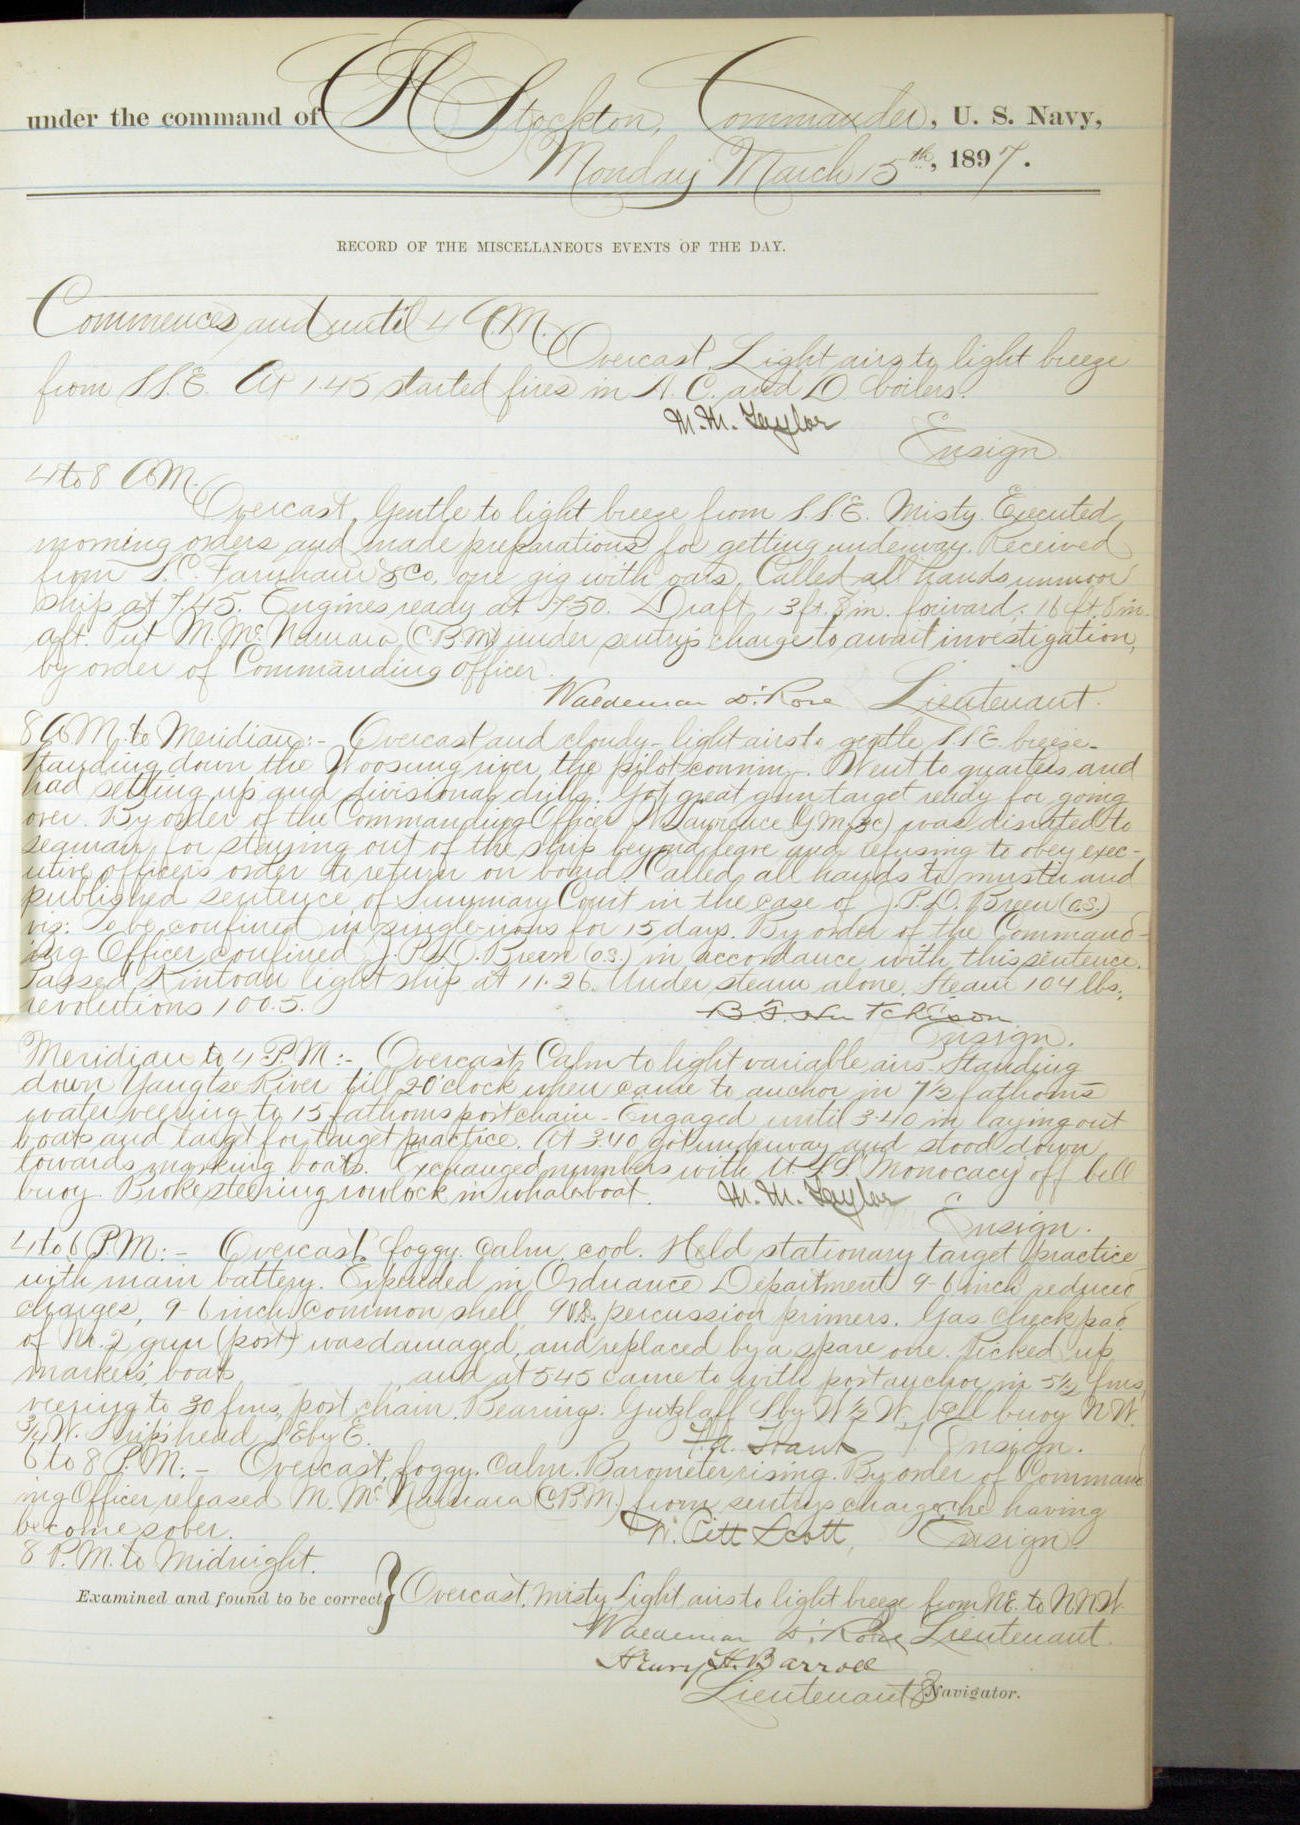 under the command of C H Stockton, Commander, U. S. Navy,
Monday March 15th, 1897.
RECORD OF THE MISCELLANEOUS EVENTS OF THE DAY.
Commences and until 4 A.M.
Overcast. Light airs to light breeze
from S.S.E. At 1.45 started fires in A. C. and D. boilers.
M. M. Taylor
Ensign
4 to 8 A.M.
Overcast, Gentle to light breeze from S.S.E. Misty. Executed
morning orders and made preparations for getting underway. Received
from S. C. Farnham & Co. one gig with oars. Called all hands unmoor
ship at 7.45. Engines ready at 7.50. Draft 13 ft. 8 in. forward; 16 ft. 8 in.
aft. Put M. McNamara (C.B.M.) under sentry's charge to await investigation,
by order of Commanding Officer.
Waldemar D. Rose Lieutenant.
8 A.M. to Meridian:- Overcast and cloudy - light airs to gentle S.S.E. breeze.
Standing down the Woosung river, the pilot conning. Went to quarters and
had setting up and divisional drills. Got great gun target ready for going
over. By order of the Commanding Officer Lawrence (G.M.3c) was disrated to
seaman, for staying out of the ship beyond leave and refusing to obey exec-
utive officer's order to return on board. Called all hands to muster and
published sentence of Summary Court in the case of J. P. D. Breen (O.S.)
viz: To be confined in single irons for 15 days. By order of the Command-
ing Officer confined J. P. D. Breen (O.S.) in accordance with this sentence.
Passed Kintoan light ship at 11.26. Under steam alone. Steam 104 lbs.,
revolutions 100.5.
B. F. Hutchison
Ensign.
Meridian to 4 P.M:- Overcast, Calm to light variable airs. Standing
down Yangtse River till 2 o'clock when came to anchor in 7½ fathoms
water veering to 15 fathoms port chain. Engaged until 3.40 in laying out
boats and target for target practice. At 3.40 got underway and stood down
towards marking boats. Exchanged numbers with U.S.S. Monocacy off bell
buoy. Broke steering rowlock in whaleboat. M. M. Taylor
Ensign.
4 to 6 P.M:- Overcast, foggy, calm, cool. Held stationary target practice
with main battery. Expended in Ordnance Department 9-6 inch reduced
charges, 9-6 inch common shell, 9 percussion primers. Gas check pad
of No. 2 gun (port) was damaged, and replaced by a spare one. Picked up
markers' boats, and at 5.45 came to with port anchor in 5½ fms
veering to 30 fms. port chain. Bearings: Gutzlaff S by W ½ W, bell buoy N.W.
¾ W. Ship's head SE by E. Ensign.
6 to 8 P.M:- Overcast, foggy. Calm. Barometer rising. By order of Command-
ing Officer released M. McNamara (C.B.M.) from sentry's charge, he having
become sober. W. Pitt Scott, Ensign.
8 P.M. to Midnight.
Examined and found to be correct } Overcast, misty. Light airs to light breeze from NE. to NNW.
Waldemar D. Rose Lieutenant.
Henry H. Barroll
Lieutenant & Navigator.